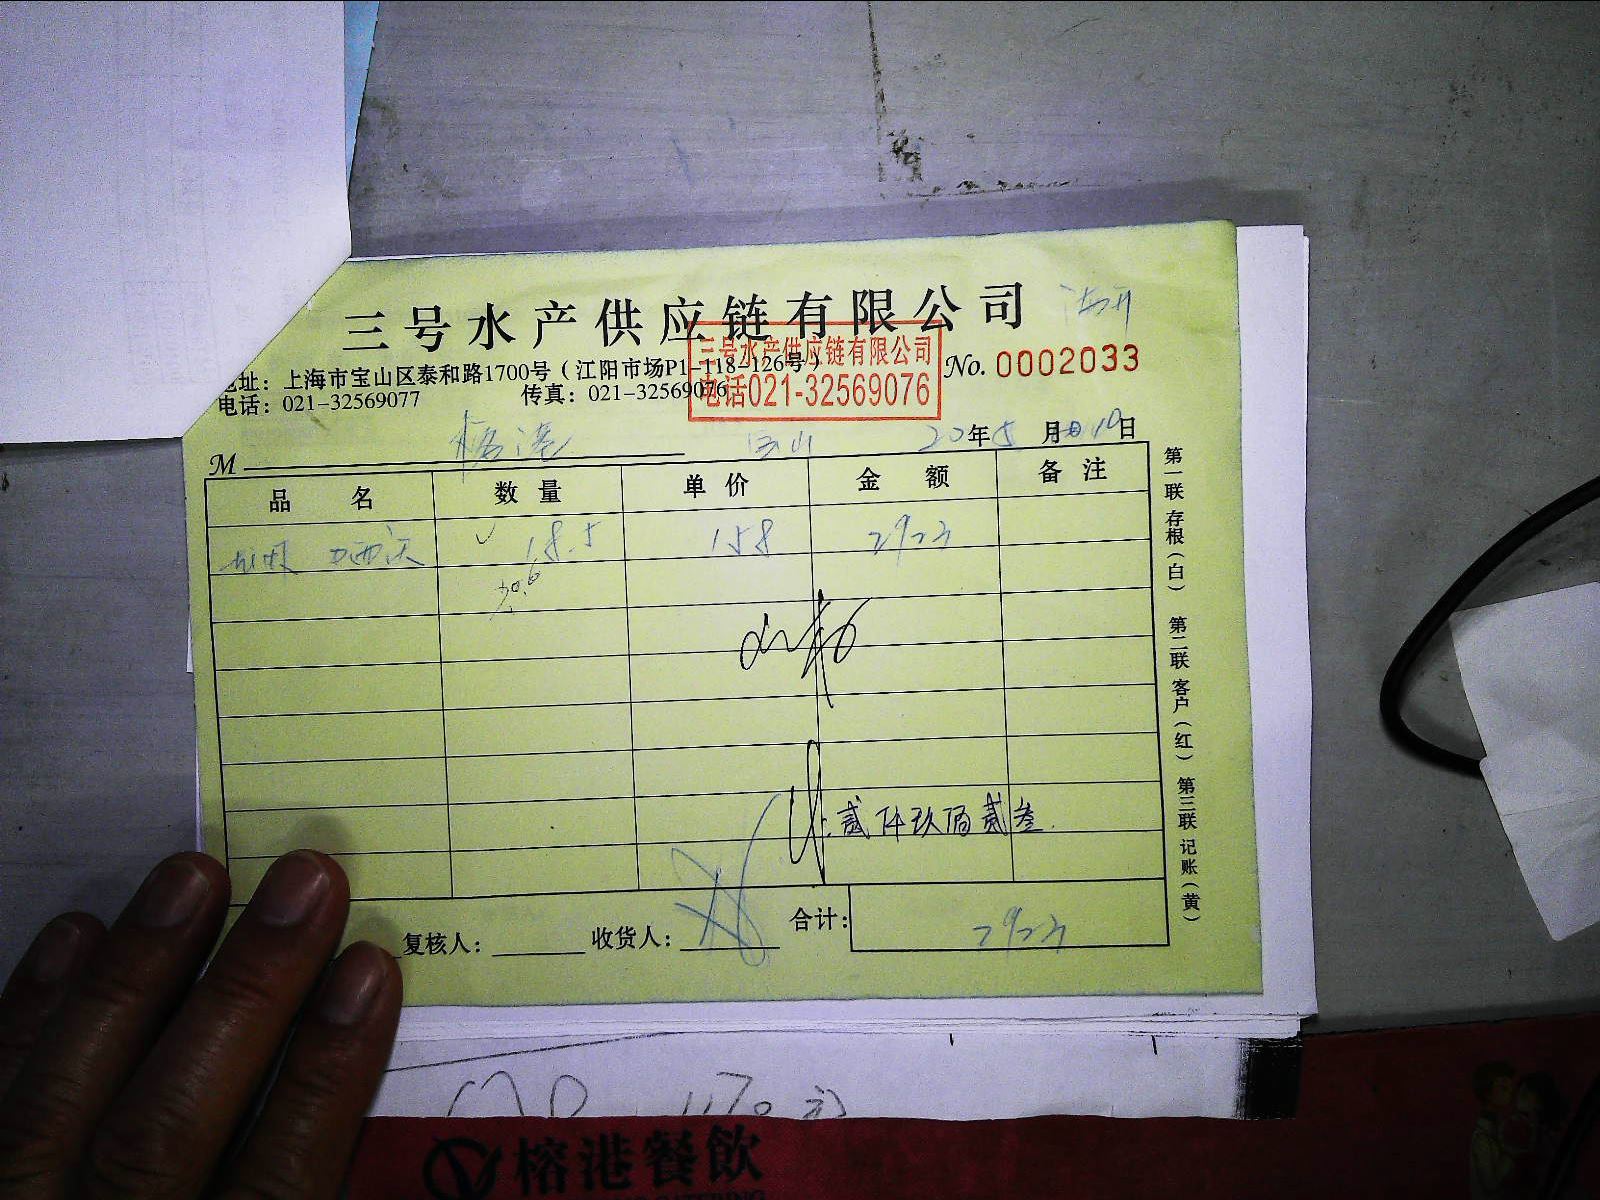 三号水产供应链有限公司
地址：上海市宝山区泰和路1700号（江阳市场P1-118-126号）
No. 0002033
电话：021-32569077 传真：021-32569076
三号水产供应链有限公司
电话021-32569076
M 榕港 宝山 20年 8月 10日
品名 数量 单价 金额 备注
18.5 158 2923
贰仟玖佰贰叁
复核人： 收货人： 合计： 2923
第一联 存根（白） 第二联 客户（红） 第三联 记账（黄）
榕港餐飲